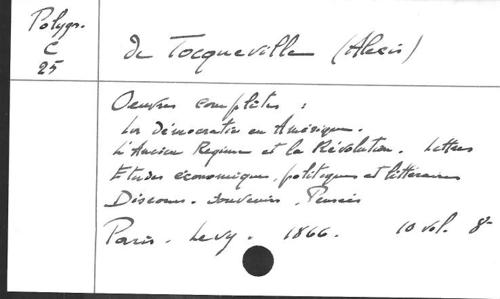 Polygr.
C
25
De Tocqueville (Alexis)
Oeuvres complètes :
La Démocratie en Amérique.
L'Ancien Regime et la Révolution. Lettres
Etudes économiques, politiques et littéraires
Discours. Souvenirs. Pensées
Paris. Levy. 1866. 10 vol. 8°